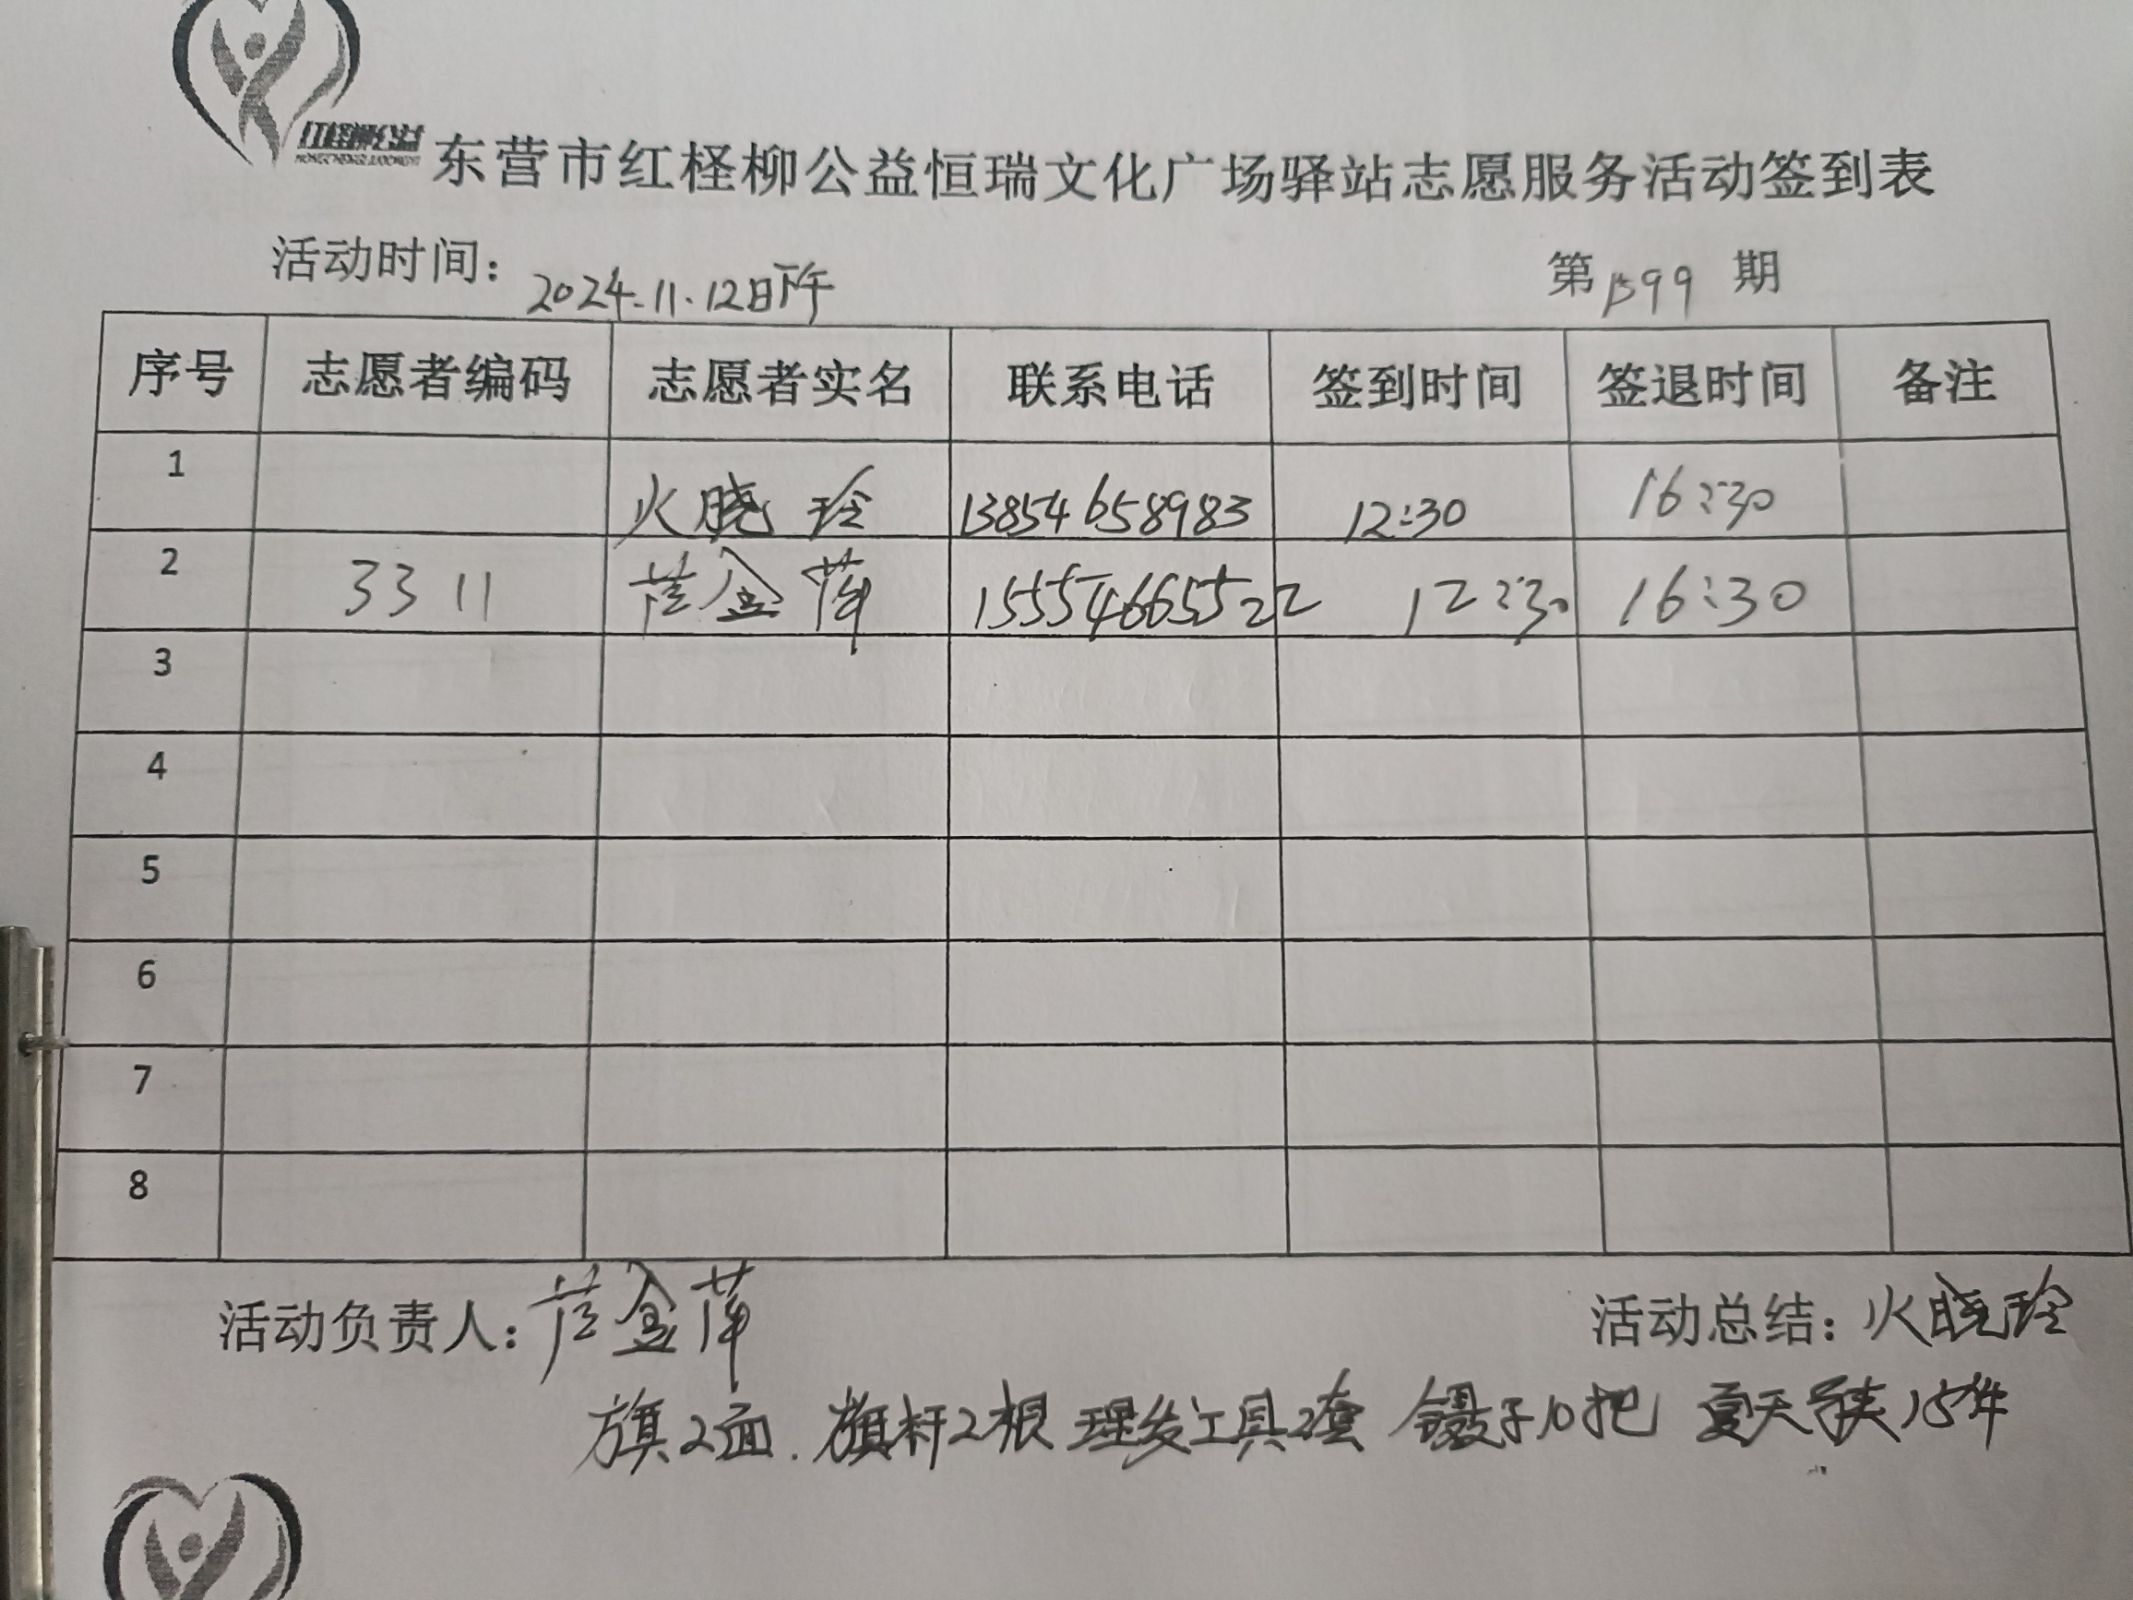 红柽柳公益
东营市红柽柳公益恒瑞文化广场驿站志愿服务活动签到表
活动时间：2024.11.12日下午 第1599期
序号 志愿者编码 志愿者实名 联系电话 签到时间 签退时间 备注
1 火晓玲 13854658983 12:30 16:30
2 3311 金萍 15554665522 12:30 16:30
3
4
5
6
7
8
活动负责人：金萍 活动总结：火晓玲
旗2面.旗杆2根 理发工具2套 镊子10把 夏天 15件